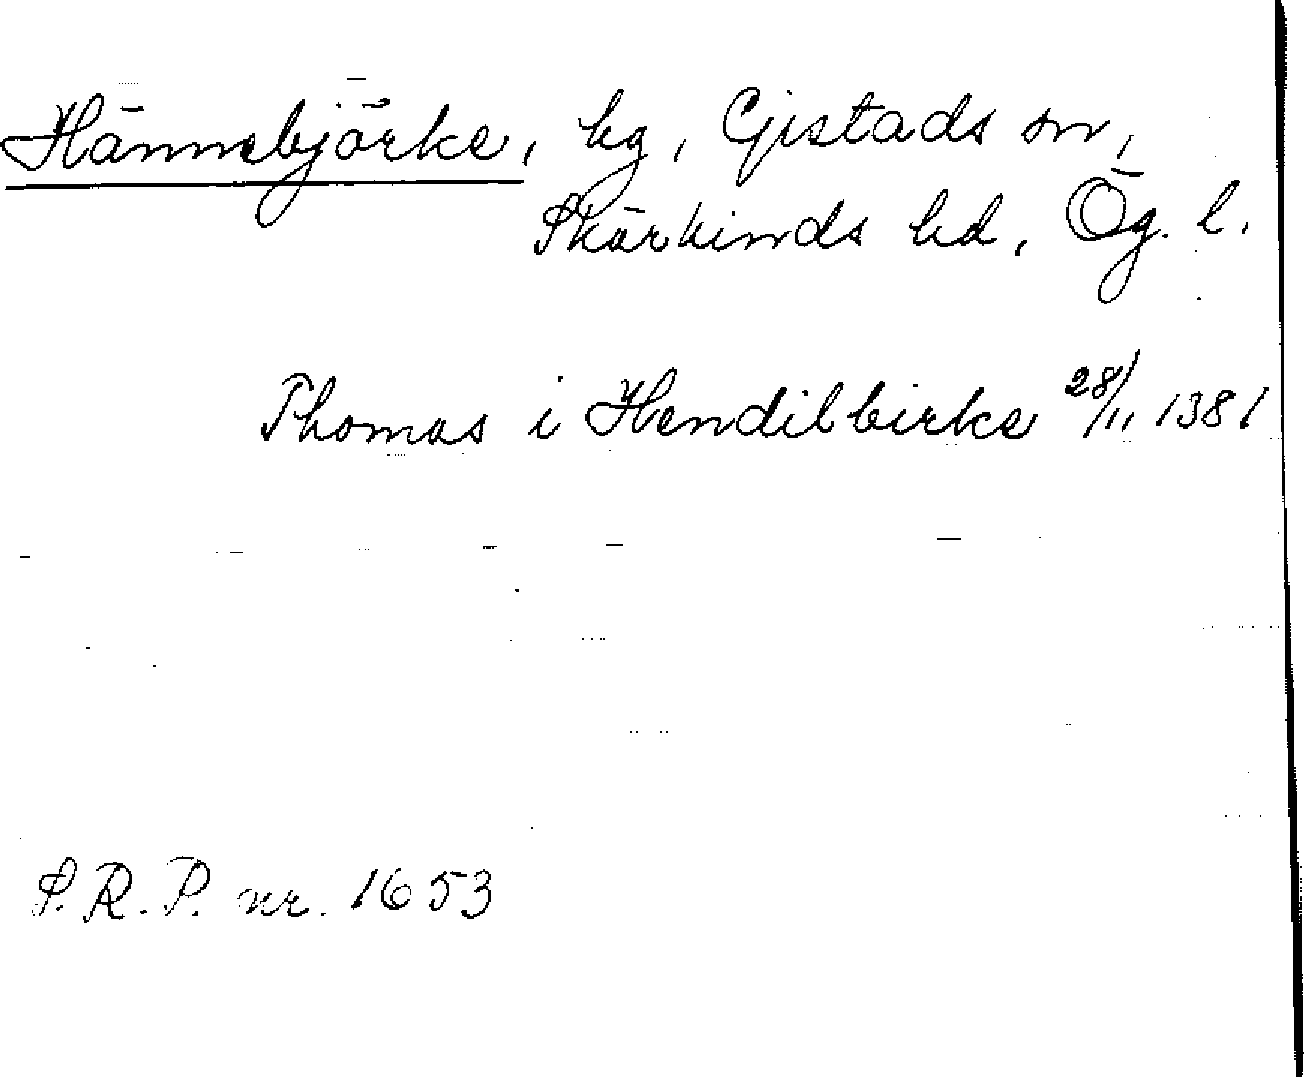 Hännebjörke, by, Gistads sn,
Skärkinds hd, Ög. l.
Thomas i Hendilbirke 28/11 1381
S.R.P. nr. 1653